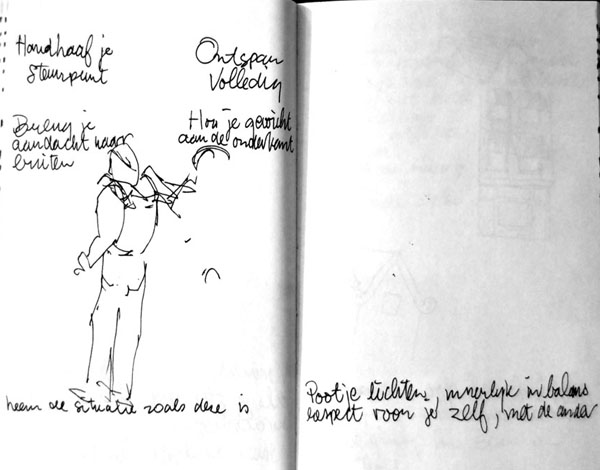 Handhaaf je
steunpunt
Ontspan
Volledig
Breng je
aandacht naar
buiten
Hou je gewicht
aan de onderkant
neem de situatie zoals deze is
Pootje lichten, innerlijk in balans
respect voor je zelf, met de ander